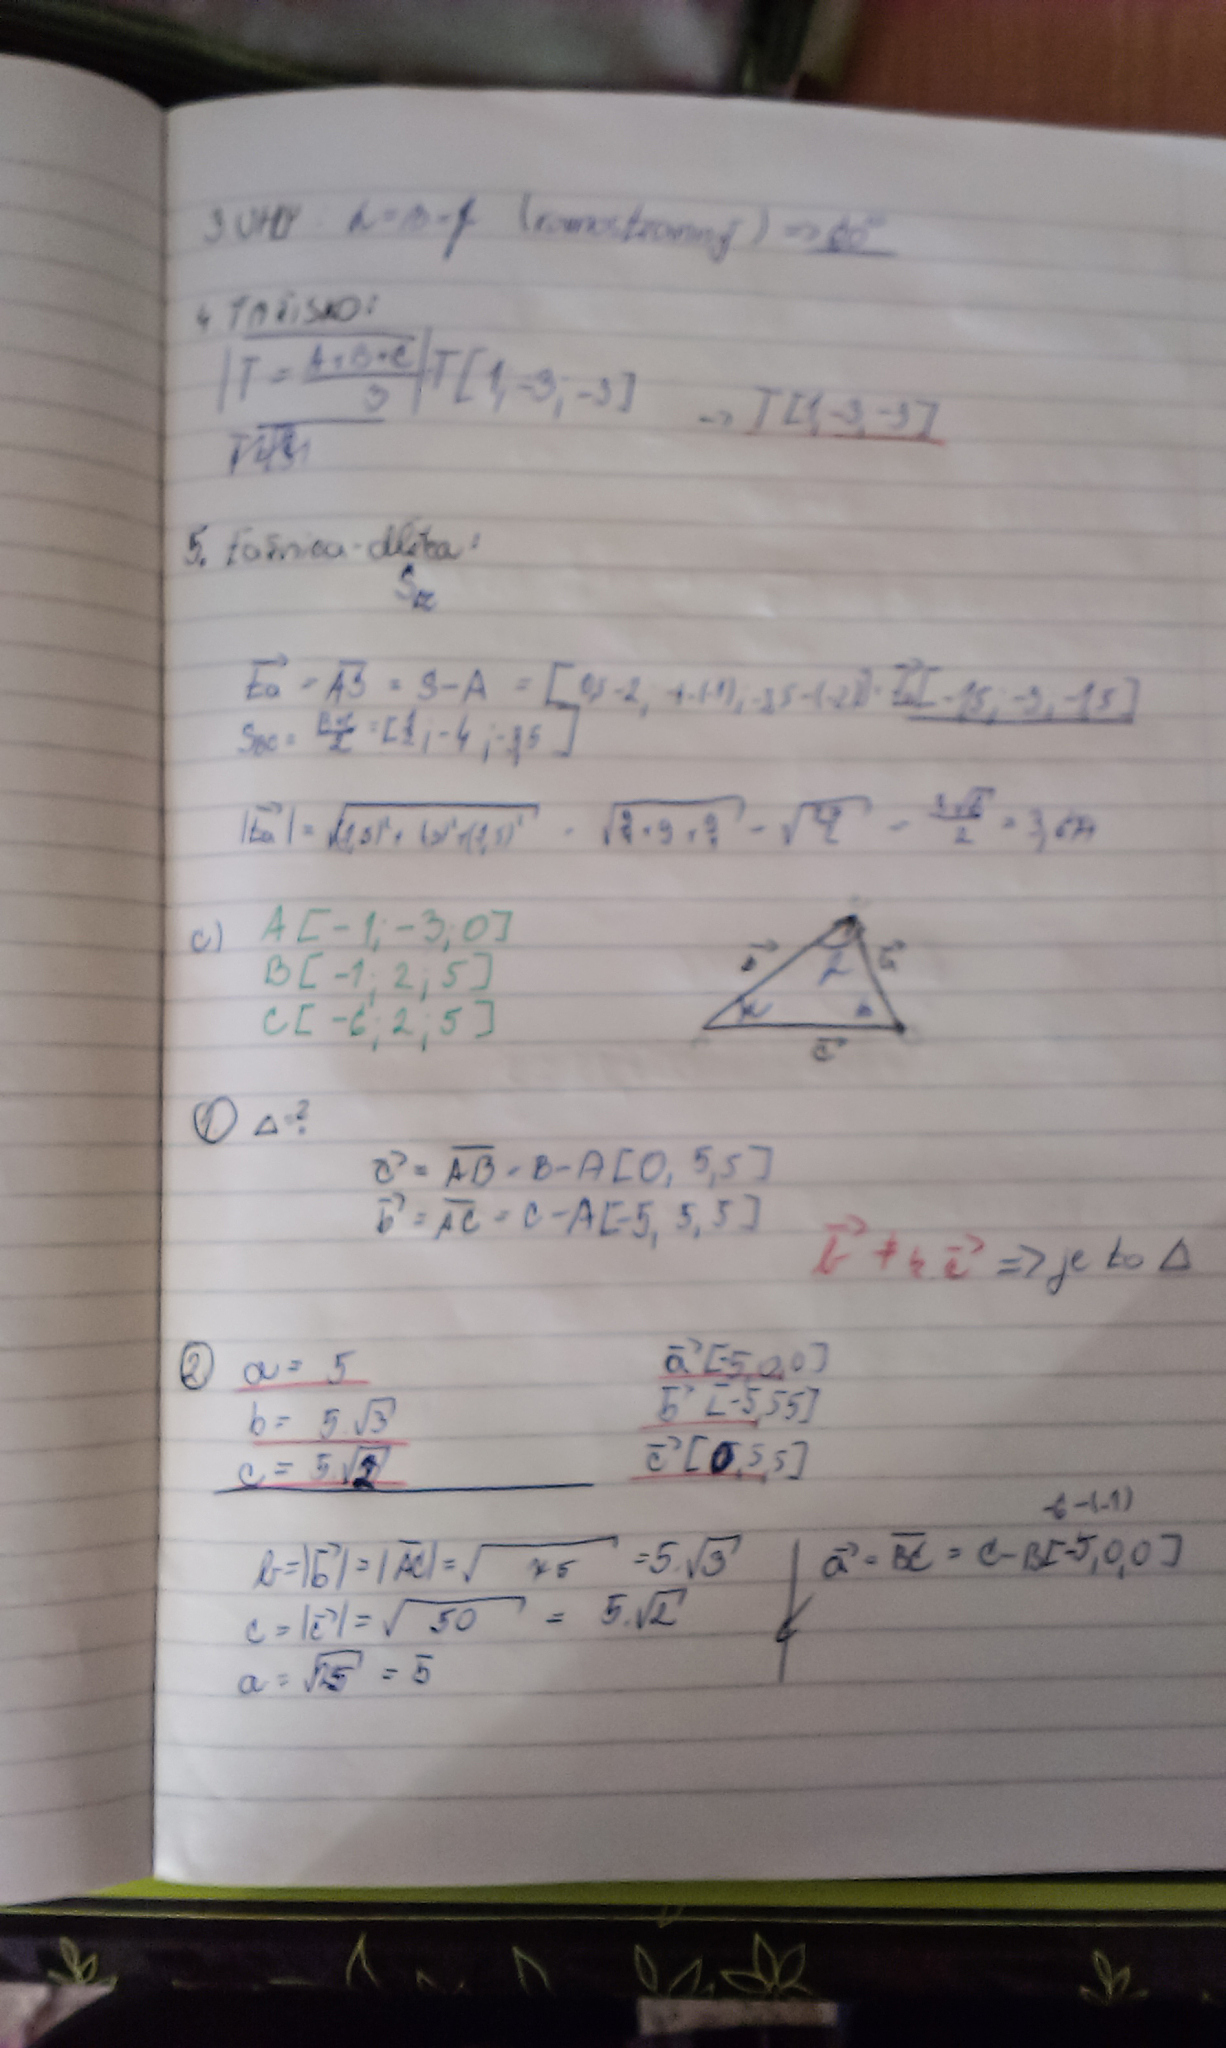 3. UHLY: α=β=γ (rovnostranný) => 60°
4. ŤAŽISKO:
|T = A+B+C / 3| T[1, -3, -3] -> T[1, -3, -3]
5. ťažnica - dĺžka:
S
ta = AS = S-A = [0,5-2; -4-(-1); -3,5-(-2)] = ta[-1,5; -3; -1,5]
SBC = B+C / 2 = [1/2; -4; -3,5]
|ta| = √(1,5)² + (3)² + (1,5)² = √9/4 + 9 + 9/4 = √27/2 = 3√6 / 2 = 3,674
c) A[-1; -3; 0]
B[-1; 2; 5]
C[-6; 2; 5]
a b
c
① Δ=?
c = AB = B-A[0, 5, 5]
b = AC = C-A[-5, 5, 5]
b ≠ k c => je to Δ
② a = 5 a[-5,0,0]
b = 5.√3 b[-5,5,5]
c = 5.√2 c[0,5,5]
-6-(-1)
b=|b|=|AC|=√75 =5.√3 a = BC = C-B[-5,0,0]
c=|c|=√50 = 5.√2
a = √25 = 5